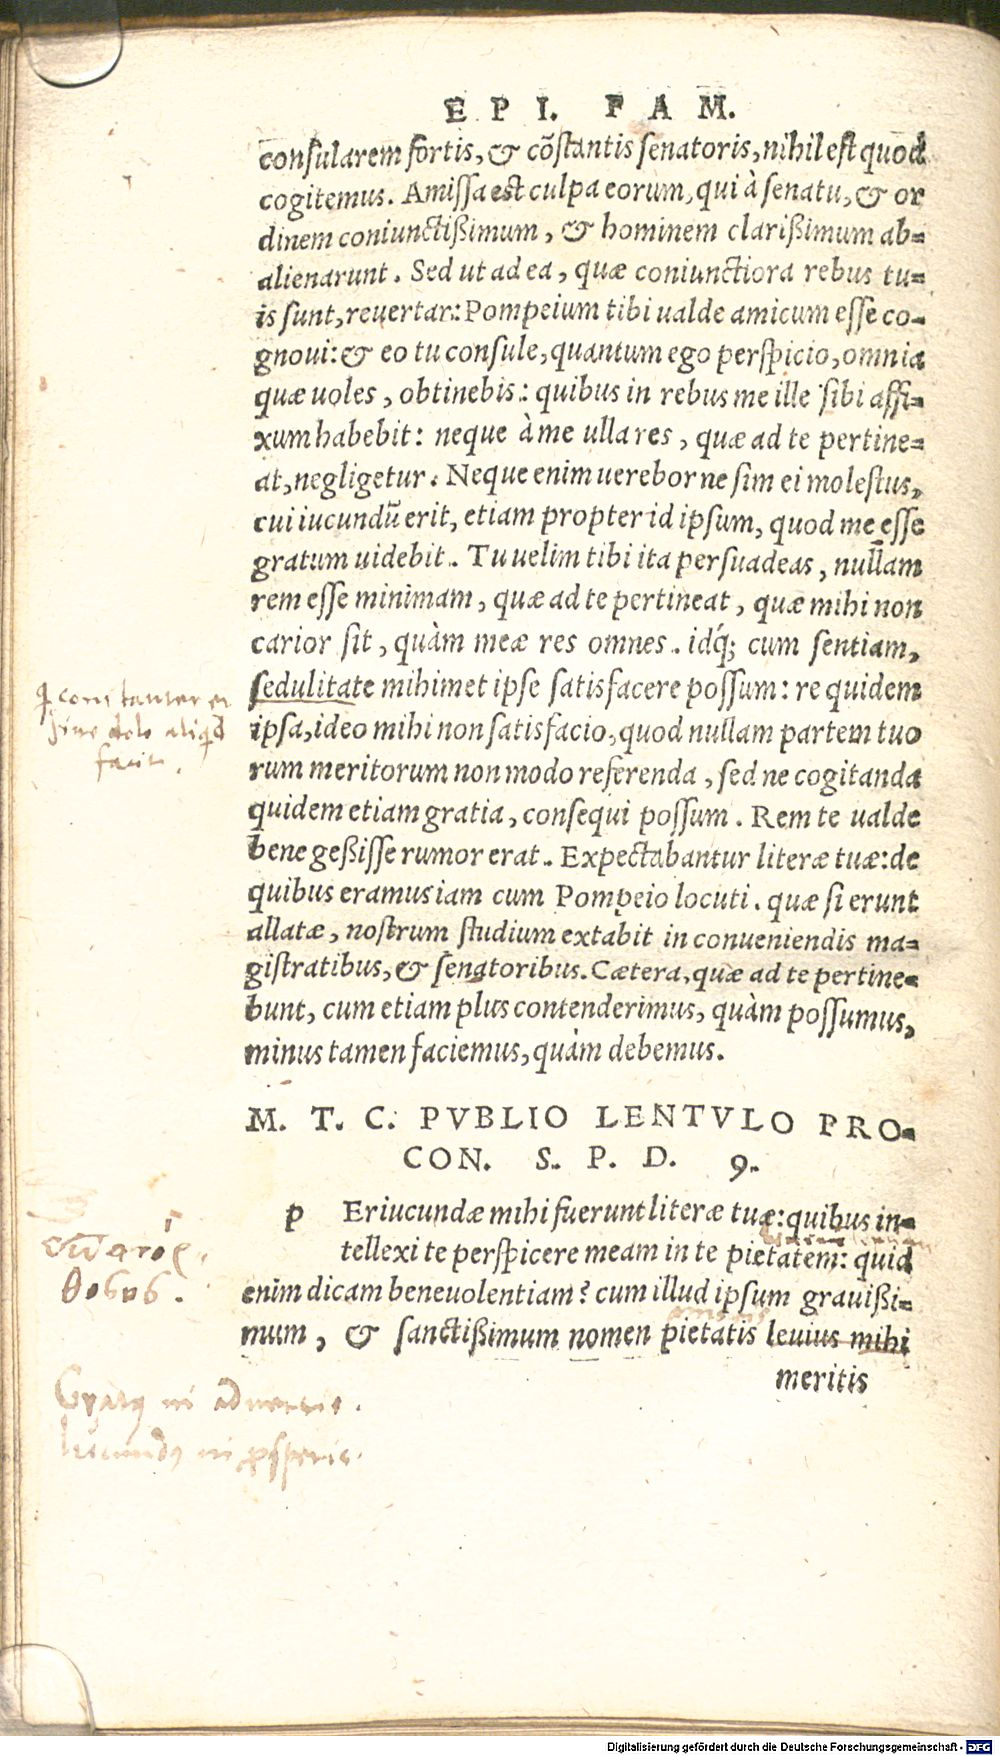 EPI. FAM.
consularem fortis, & cõstantis senatoris, nihil est quod
cogitemus. Amissa est culpa eorum, qui à senatu, & or
dinem coniunctißimum, & hominem clarißimum ab-
alienarunt. Sed ut ad ea, quæ coniunctiora rebus tu-
is sunt, reuertar: Pompeium tibi ualde amicum esse co-
gnoui: & eo tu consule, quantum ego perspicio, omnia
quæ uoles, obtinebis: quibus in rebus me ille sibi affi-
xum habebit: neque à me ulla res, quæ ad te pertine-
at, negligetur. Neque enim uerebor ne sim ei molestus,
cui iucundũ erit, etiam propter id ipsum, quod me esse
gratum uidebit. Tu uelim tibi ita persuadeas, nullam
rem esse minimam, quæ ad te pertineat, quæ mihi non
carior sit, quàm meæ res omnes. idq́; cum sentiam,
sedulitate mihimet ipse satisfacere possum: re quidem
ipsa, ideo mihi non satisfacio, quod nullam partem tuo
rum meritorum non modo referenda, sed ne cogitanda
quidem etiam gratia, consequi possum. Rem te ualde
bene geßisse rumor erat. Expectabantur literæ tuæ: de
quibus eramus iam cum Pompeio locuti. quæ si erunt
allatæ, nostrum studium extabit in conueniendis ma-
gistratibus, & senatoribus. Cætera, quæ ad te pertine-
bunt, cum etiam plus contenderimus, quàm possumus,
minus tamen faciemus, quàm debemus.
M. T. C. PVBLIO LENTVLO PRO-
CON. S. P. D. 9.
p Eriucundæ mihi fuerunt literæ tuæ: quibus in-
tellexi te perspicere meam in te pietatem: quid
enim dicam beneuolentiam? cum illud ipsum grauißi-
mum, & sanctißimum nomen pietatis leuius mihi
meritis
sine dolo aliqd
facit.
in aduersis.
Iucundus in prosperis.
Digitalisierung gefördert durch die Deutsche Forschungsgemeinschaft - DFG